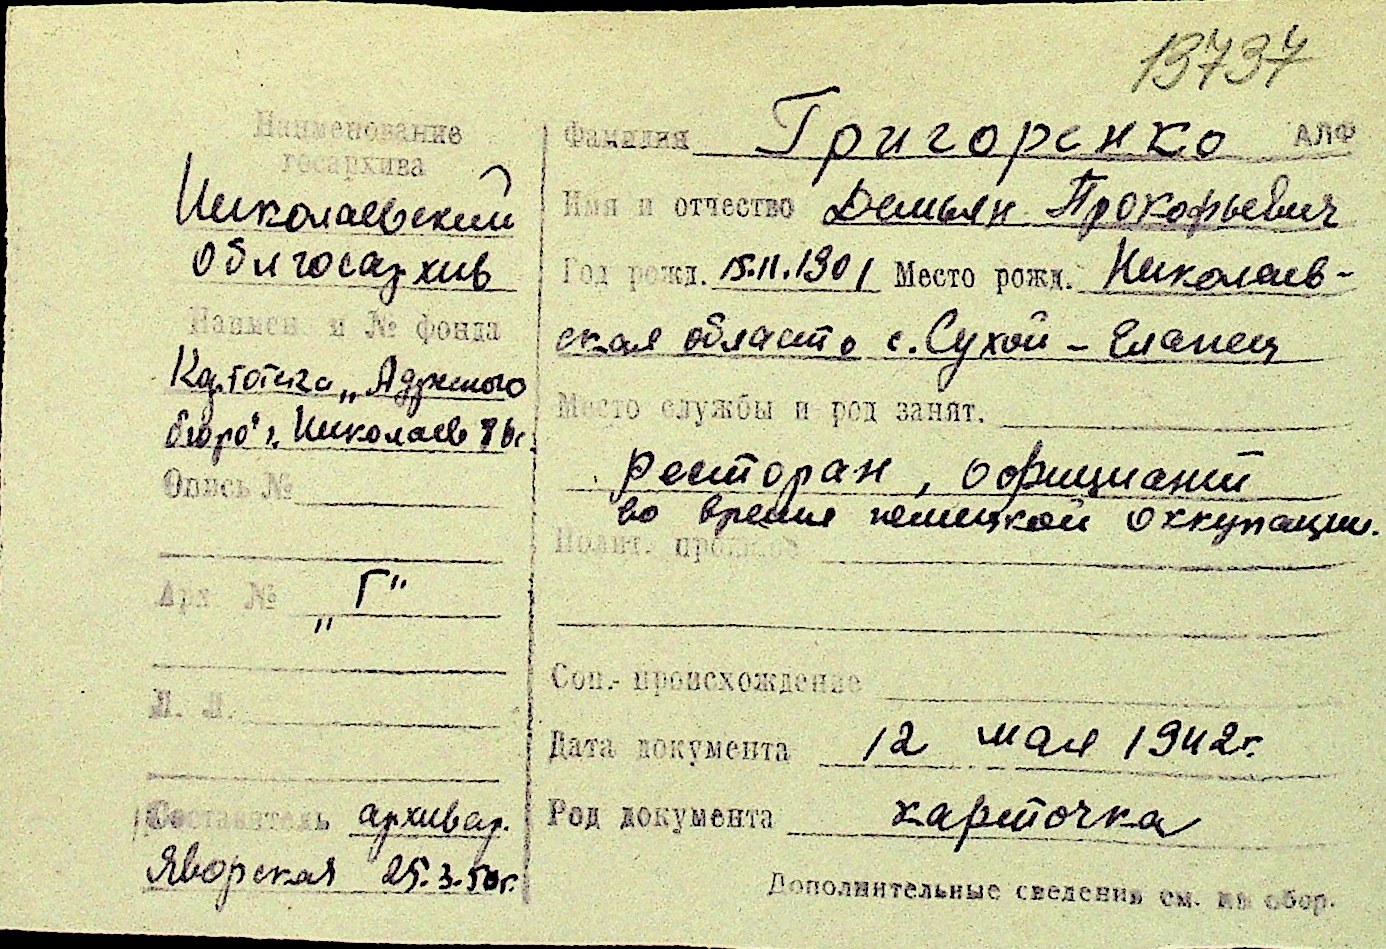 13737
Наименование
госархива
Николаевский
Облгосархив
Наимен и № фонда
Картотека „Адресного
бюро" г. Николаев
Опись №
Арх №
„Г"
Л. Л.
Составитель архивар.
Яворская 25.3.50г.
Фамилия Григоренко АЛФ
Имя и отчество Демьян Прокофьевич
Год рожд. 15.11.1901 Место рожд. Николаев-
ская область с. Сухой - Еланец
Место службы и род занят.
ресторан, официант
во время немецкой оккупации.
Полит. прошлое
Соц.- происхождение
Дата документа 12 мая 1942г.
Род документа карточка
Дополнительные сведения см. на обор.